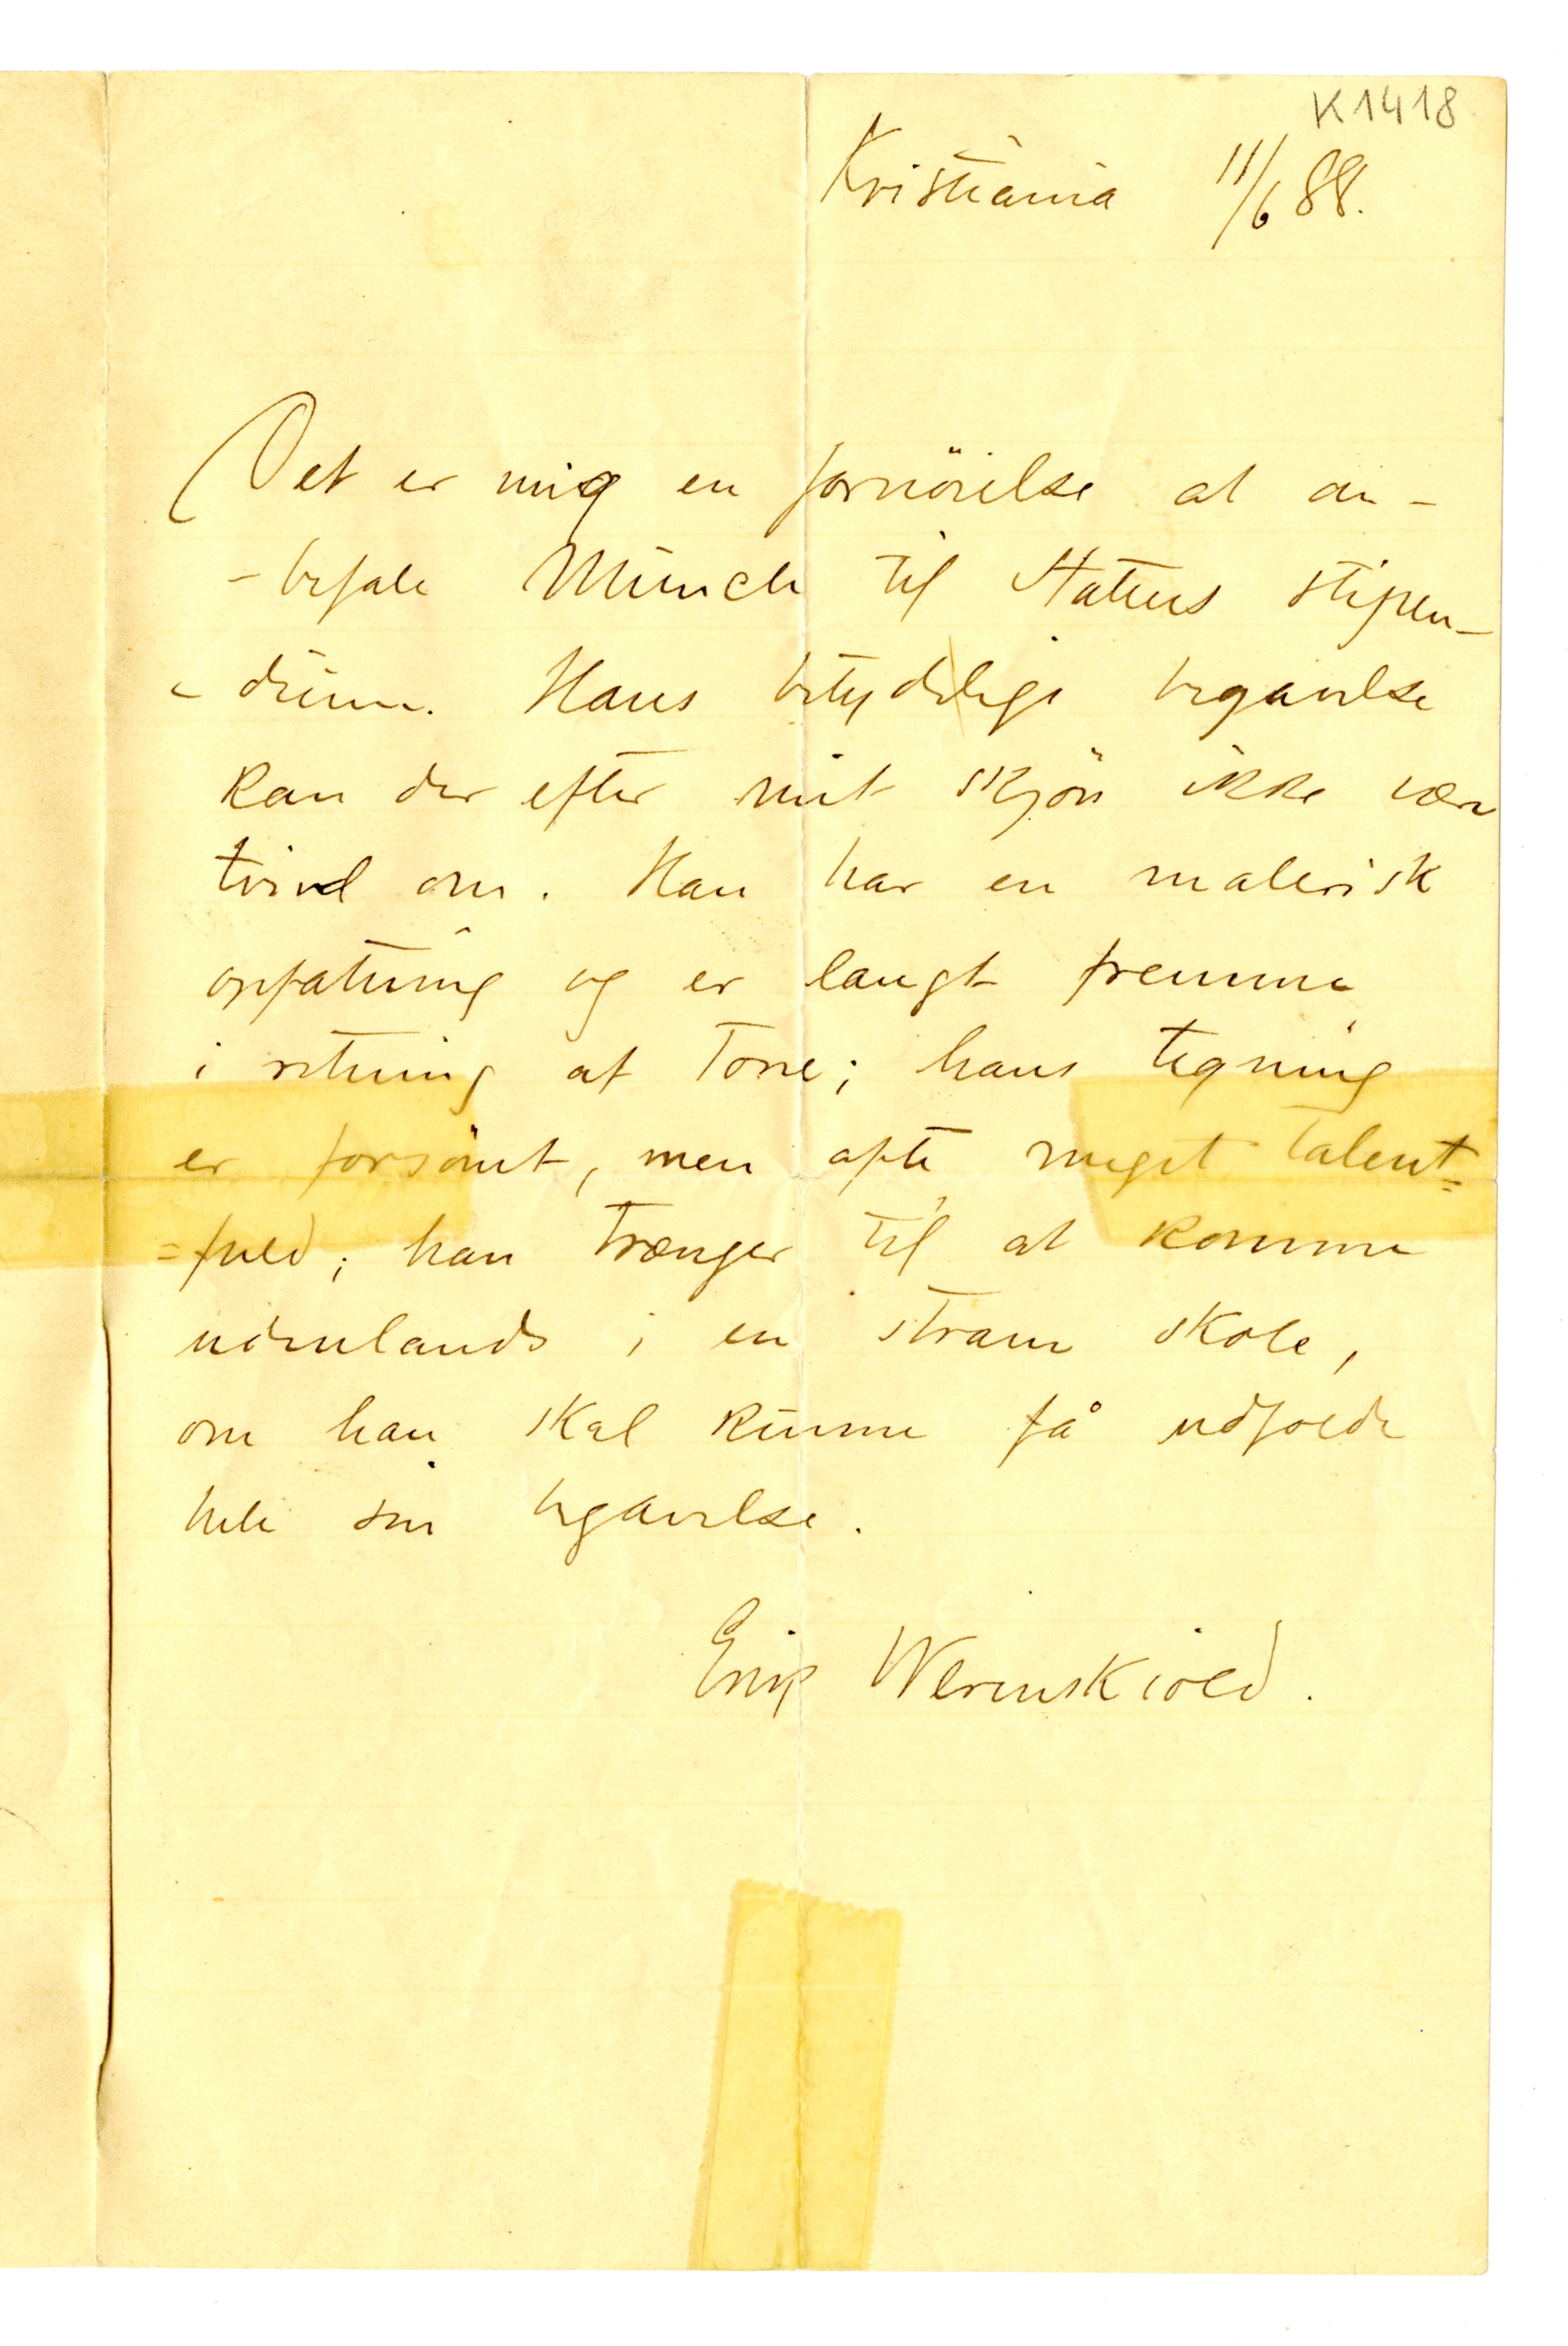 K1418
Kristiania 11/6 88.
Det er mig en fornöielse at an-
-befale Münch til Statens stipen-
-dium. Hans betydelige begavelse
kan der efter mit skjön ikke være
tvivl om. Han har en malerisk
opfatning og er langt fremme
i retning af Tone; hans tegning
er forsömt, men ofte meget talent=
=fuld; han trænger til at komme
udenlands i en stram skole,
om han skal kunne få udfolde
hele sin begavelse.
Erik Werenskiold.